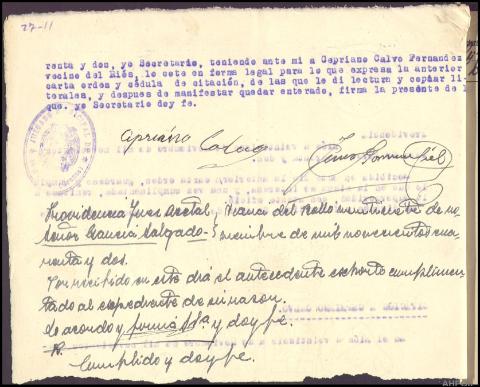 27-11
renta y dos, yo Secretario, teniendo ante mi a Cepriano Calvo Fernandez
vecino del Riós, le cete en forma legal para lo que expresa la anterior
carta orden y cédula de citación, de las que le di lectura y copias li-
terales, y despues de manifestar quedar enterado, firma la presente de l
que. yo Secretario doy fe.
Cipriano Calvo
Providencia Juez Acctal. Viana del Bollo veintisiete de no-
Señor García Salgado.- viembre de mil novecientos cua-
renta y dos.
Por recibido en este día el antecedente exhorto cumplimen-
tado al expediente de su razon.
Lo acordo y firma S.Sª y doy fe.
Cumplido y doy fe.